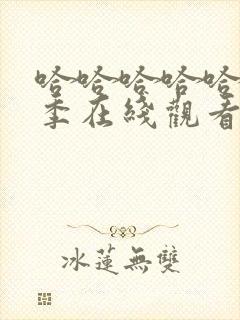 哈哈哈哈哈
季在綫觀看
冰蓮無雙